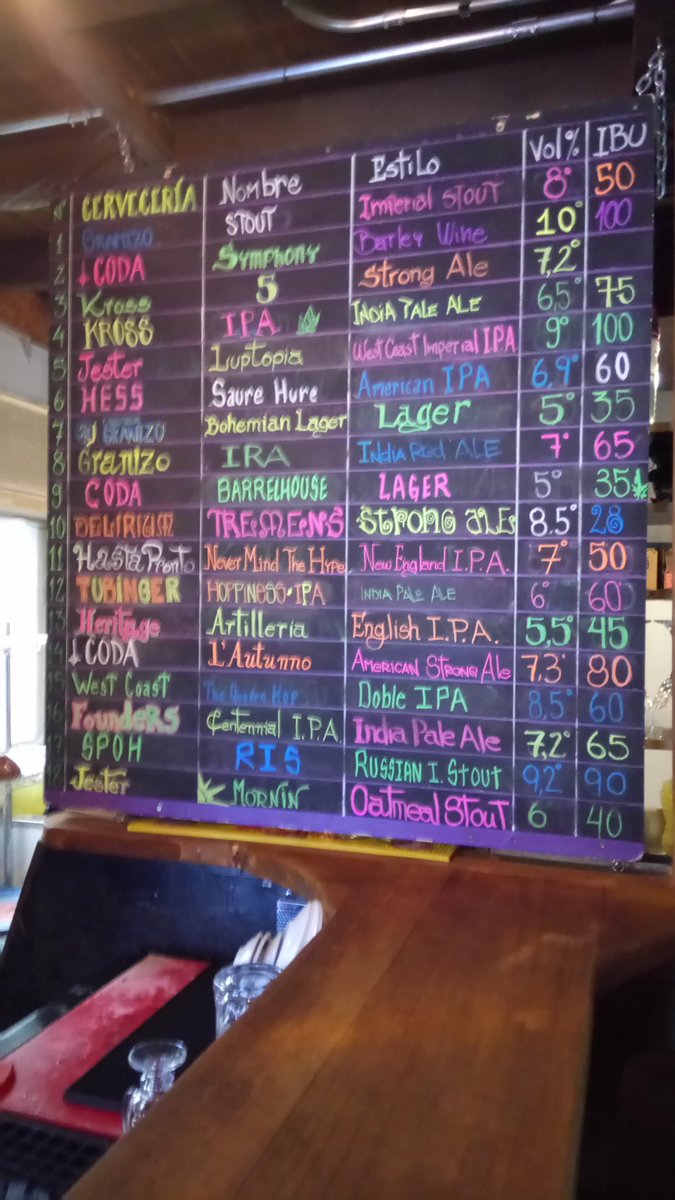 N° CERVECERÍA Nombre Estilo Vol% IBU
1 GRANIZO STOUT Imperial STOUT 8° 50
2 CODA Symphony Barley Wine 10° 100
3 Kross 5 Strong Ale 7,2°
4 KROSS IPA INDIA PALE ALE 6,5° 75
5 Jester Luptopia West Coast Imperial I.P.A 9° 100
6 HESS Saure Hure American IPA 6,9° 60
7 GRANIZO Bohemian Lager Lager 5° 35
8 Granizo IRA India Red ALE 7° 65
9 CODA BARRELHOUSE LAGER 5° 35
10 DELIRIUM TREMENS STRONG ALE 8.5° 28
11 Hasta Pronto Never Mind The Hype New England I.P.A. 7° 50
12 TÜBINGER HOPPINESS IPA INDIA PALE ALE 6° 60
13 Heritage Artilleria English I.P.A. 5,5° 45
14 CODA L'Autunno AMERICAN STRONG Ale 7,3° 80
15 West Coast The Hop Doble IPA 8,5° 60
16 FoundeRS Centennial I.P.A. India Pale Ale 7,2° 65
17 SPOH RIS RUSSIAN I. STOUT 9,2° 90
18 Jester MORNIN Oatmeal Stout 6 40